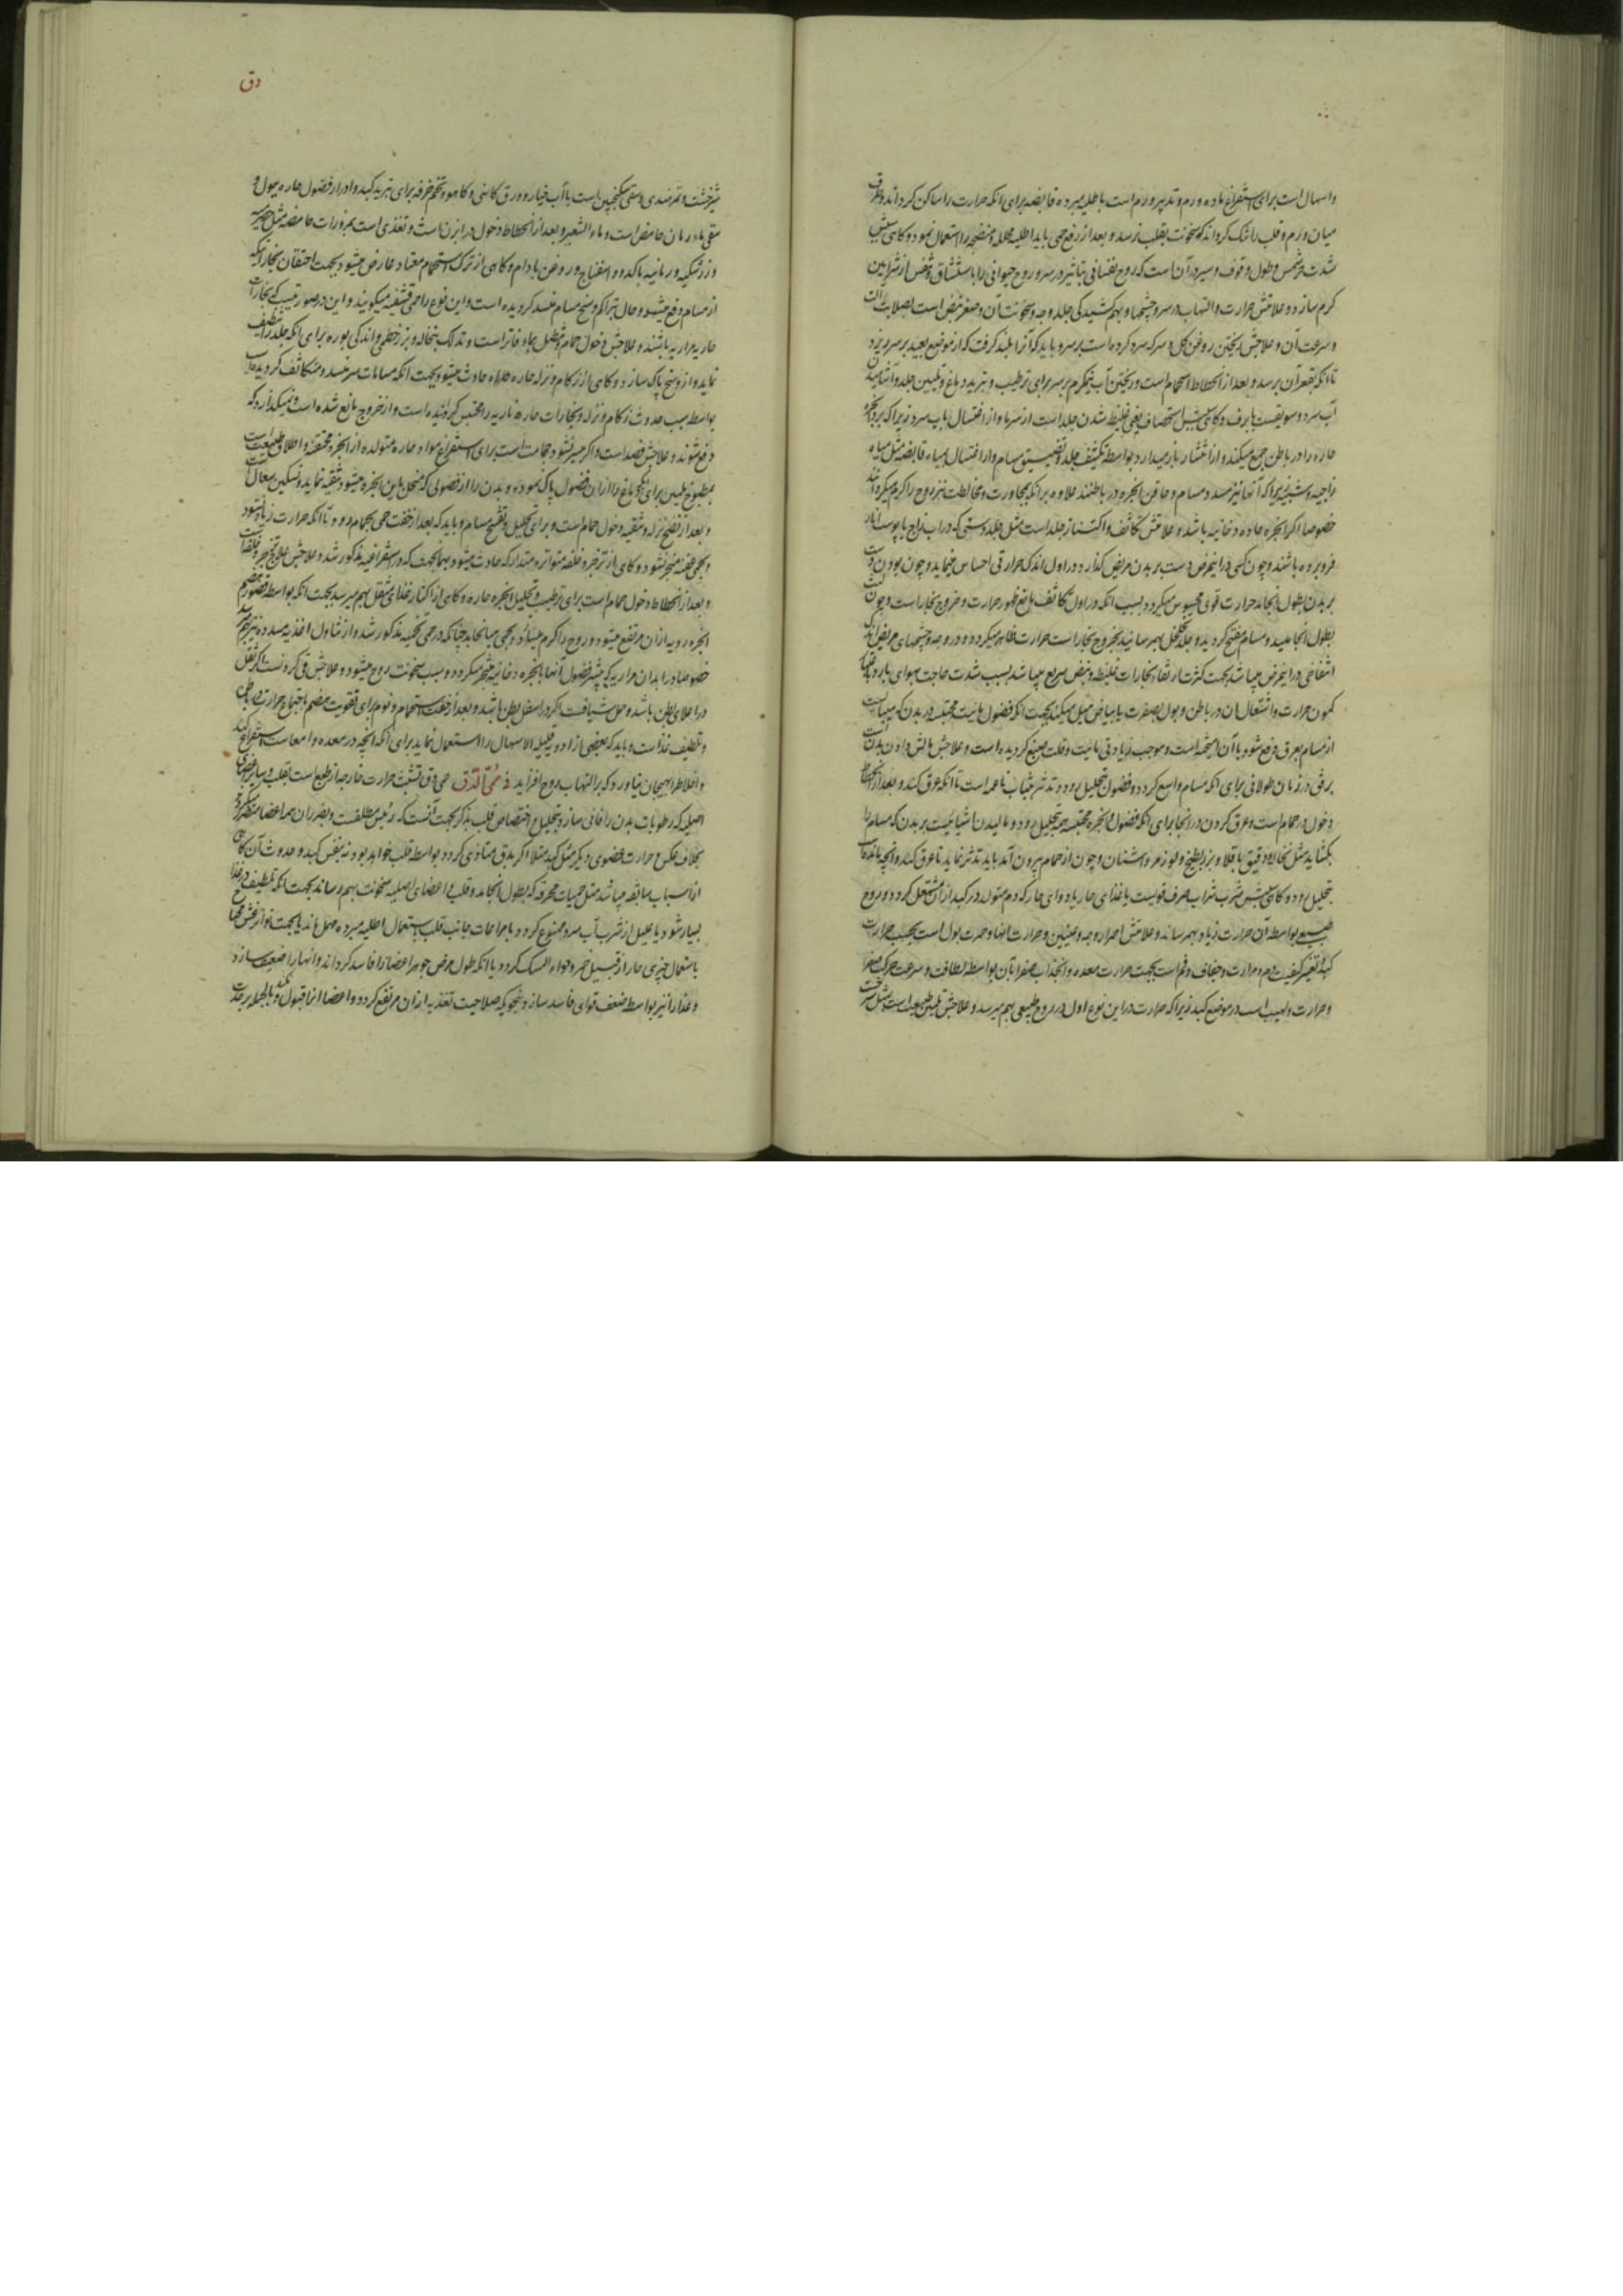 واسهال است برای استفراغ ماده ورم و تدبیر ورم است باطلیه مبرده قابضه برای انکه حرارت را ساکن گرداند و طرف
میان ورم و قلب را تنک گرداند که سخونت بقلب نرسد و بعد از رفع حمی باید اطلیه محلله و منضجه را استعمال نمود و گاهی سببش
شدت حر شمس و طول وقوف و سیر در آن است که روح نفسانی بتاثیر در سر و روح حیوانی را باستنشاق و تنفس از شرایین
گرم سازد و علامتش حرارت و التهاب در سر و چشمها و بهم کشیدگی جلد وجه و سخونت آن و صغر نبض است لصلابت
و سرعت آن و علاجش ریختن روغن گل و سرکه سرد کرده است بر سر و باید که آنرا بلند گرفت که از موضع بعید بر سر بریزد
تا انکه بقعر آن برسد و بعد از انحطاط استحمام است و ریختن آب نیمگرم بر سر برای ترطیب و تبرید دماغ و تلیین جلد و آشامیدن
آب سرد و سویقست با برف و گاهی سببش استحصاف یعنی غلیظ شدن جلد است از سرما و از اغتسال بآب سرد زیرا که برد ابخره
حاره را در باطن جمع میکند و از انتشار باز میدارد بواسطه تکثیف جلد و تضییق مسام و از اغتسال بمیاه قابضه مثل میاه
زاجیه و شبیه زیرا که آنها نیز مسدد مسام و حاقن ابخره در باطنند علاوه بر انکه بمجاورت و مخالطت نیز روح را گرم میگرداند
خصوصا اگر ابخره حاده دخانیه باشد و علامتش تکاثف و اکتناز جلد است مثل جلد دستی که در آب زاج یا پوست انار
فرو برده باشند و چون کسی در اینمرض دست بر بدن مریض گذارد در اول اندک حرارتی احساس مینماید و چون بودن دست
بر بدن بطول انجامد حرارت قوی محسوس میگردد بسبب انکه در اول تکاثف مانع ظهور حرارت و خروج بخار است و چون
بطول انجامید و مسام منفتح گردید و جلد تخلخل بهم رسانید بخروج بخار است حرارت ظاهر میگردد و در وجه و چشمهای مریض اندک
انتفاخی در اینمرض میباشد بجهت کثرت ارتقاء بخارات غلیظه و نبض سریع میباشد بسبب شدت حاجت بهوای بارد بجهت
کمون حرارت و اشتعال آن در باطن و بول بصفرت یا ببیاض میل میکند بجهت انکه فضول مائیت محتبسه در بدن که میبایست
از مسام بعرق دفع شود با آن آمیخته است و موجب زیادتی مائیت و قلت صبغ گردیده است و علاجش مالش دادن بدن است
برفق در زمان طولانی برای انکه مسام واسع گردد و فضول بتحلیل رود و تدثر بثیاب ناعمه است تا انکه عرق کند و بعد از انحطاط
دخول در حمام است و عرق کردن در انجا برای انکه فضول و ابخره محتبسه همه بتحلیل رود و مالیدن اشیائیست بر بدن که مسام را
بگشاید مثل نخاله و دقیق باقلا و بزر بطیخ و لوز مر و اشنان و چون از حمام بیرون آمد باید تدثر نماید تا عرق کند و آنچه مانده
بتحلیل رود و گاهی سببش شرب شراب صرف قویست یا غذای حار یا دوای حار که دم متولد در کبد از آن مشتعل گردد و روح
طبیعی بواسطه آن حرارت زیاد بهم رساند و علامتش احمرار وجه و عینین و حرارت آنها و حمرت بول است بحسب حرارت
کبد و تغیر کیفیت دم و مرارت و جفاف فم است بجهت حرارت معده و انجذاب صفرا بآن بواسطه لطافت و سرعت حرکت صفرا
و حرارت و لهیب است در موضع کبد زیرا که حرارت در این نوع اول در روح طبیعی بهم میرسد و علاجش تلیین طبیعت است بمثل
دق
شیرخشت و تمرهندی و سقی سکنجبین است با آب خیار و ورق کاسنی و کاهو و تخم خرفه برای تبرید کبد و ادرار فضول حاره ببول و
سقی ماء رمان حامض است و ماء الشعیر و بعد از انحطاط دخول در آبزن است و تغذی است بمزورات حامضه مثل حصرمیه
و زرشکیه و رمانیه با کدو و اسفناج و روغن بادام و گاهی از ترک استحمام معتاد عارض میشود بجهت احتقان بخار آنکه
از مسام دفع میشد و حال بتراکم وسخ مسام منسد گردیده است و این نوع را حمی قشفیه میگویند و این در صورتیست که بخارات
حاریه مراریه باشند و علاجش دخول حمام و تنطیل بماء فاتر است و تدلک بنخاله و بزر خطمی و اندکی بوره برای انکه جلد را تنظیف
نماید و از وسخ پاک سازد و گاهی از زکام و نزله حاره حاده حادث میشود بجهت انکه مسامات سر منسد و متکاثف گردیده
بواسطه سبب حدوث زکام و نزله و بخارات حاره ناریه را محتبس گردانیده است و از خروج مانع شده است و نمیگذارد که
دفع شوند و علاجش فصد است و اگر میسر نشود حجامت است برای استفراغ مواد حاره متولده از ابخره محتقنه و اطلاق طبیعت
بمطبوخ ملین برای انکه دماغ را از ان فضول پاک نموده و بدن را از فضولی که منحل باین ابخره میشود تنقیه نماید و تسکین سعال است
و بعد از نضج نزله و تنقیه دخول حمام است برای تحلیل و تفتیح مسام و باید که بعد از خفت حمی بحمام رود تا انکه حرارت زیاد نشود
و بحمی عفنه منجر نشود و گاهی از تزحر و خلفه متواتره متدارکه حادث میشود بهمان جهت که در استفراغیه مذکور شد و علاجش علاج تزحر و خلفه است
و بعد از انحطاط دخول حمام است برای ترطیب و تحلیل ابخره حاره و گاهی از اکثار غذای مثقل بهم میرسد بجهت انکه بواسطه قصور هضم
ابخره ردیه از ان مرتفع میشود و روح را گرم میسازد و بحمی میانجامد چنانکه در حمی تخمیه مذکور شد و از تناول اغذیه مسدده نیز بهم میرسد
خصوصا در ابدان مراریه که بیشتر فضول آنها بابخره دخانیه متبخر میگردد و سبب سخونت روح میشود و علاجش قی کردنست اگر ثقل
در اعلای بطن باشد و حمل شیافت اگر در اسفل بطن باشد و بعد از خفت استحمام و نوم برای تقویت هضم باجتماع حرارت در باطن
و تلطیف غذاست و باید که بعضی از ادویه قلیله الاسهال را استعمال نماید برای انکه آنچه در معده و امعاست استفراغ کند
و اخلاط را بهیجان نیاورد که بر التهاب روح افزاید فی حمی الدق حمی دق تشبث حرارت خارجه از طبع است بقلب و سایر اعضای
اصلیه که رطوبات بدن را فانی سازد و بتحلیل و اختصاص قلب بذکر بجهت آنست که رئیس مطلقست و بضرر ان همه اعضا متضرر گردد
بخلاف عکس حرارت عضوی دیگر مثل کبد مثلا اگر بدق متادی گردد بواسطه قلب خواهد بود نه بنفس کبد و حدوث آن گاهی
از اسباب سابقه میباشد مثل حمیات محرقه که بطول انجامد و قلب و اعضای اصلیه سخونت بهم رساند بجهت انکه تلطیف در غذا
بسیار شود یا علیل از شرب آب سرد ممنوع گردد یا مراعات جانب قلب باستعمال اطلیه مبرده مهمل ماند یا بجهت تواتر غشی محتاج
باستعمال چیزی حار از قبیل خمر و دواء المسک گردد یا انکه طول مرض جوهر اعضا را فاسد گرداند و آنها را ضعیف سازد
و غذا را نیز بواسطه ضعف قوای فاسد سازد بنحویکه صلاحیت تغذیه از ان مرتفع گردد و اعضا انرا قبول نکند و بالجمله